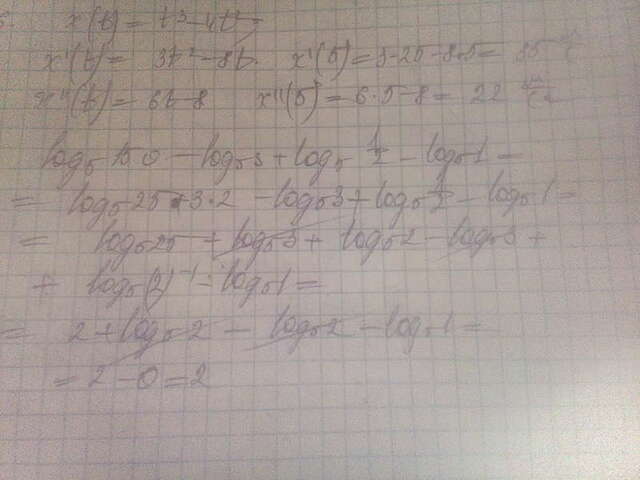 x(t) = t³ - 4t²
x'(t) = 3t² - 8t. x'(5) = 3·25 - 8·5 = 35
x''(t) = 6t - 8 x''(5) = 6·5 - 8 = 22
log₅150 - log₅3 + log₅ 1/2 - log₅1 =
= log₅25·3·2 - log₅3 + log₅ 1/2 - log₅1 =
= log₅25 + log₅3 + log₅2 - log₅3 +
+ log₅(2)⁻¹ - log₅1 =
= 2 + log₅2 - log₅2 - log₅1 =
= 2 - 0 = 2